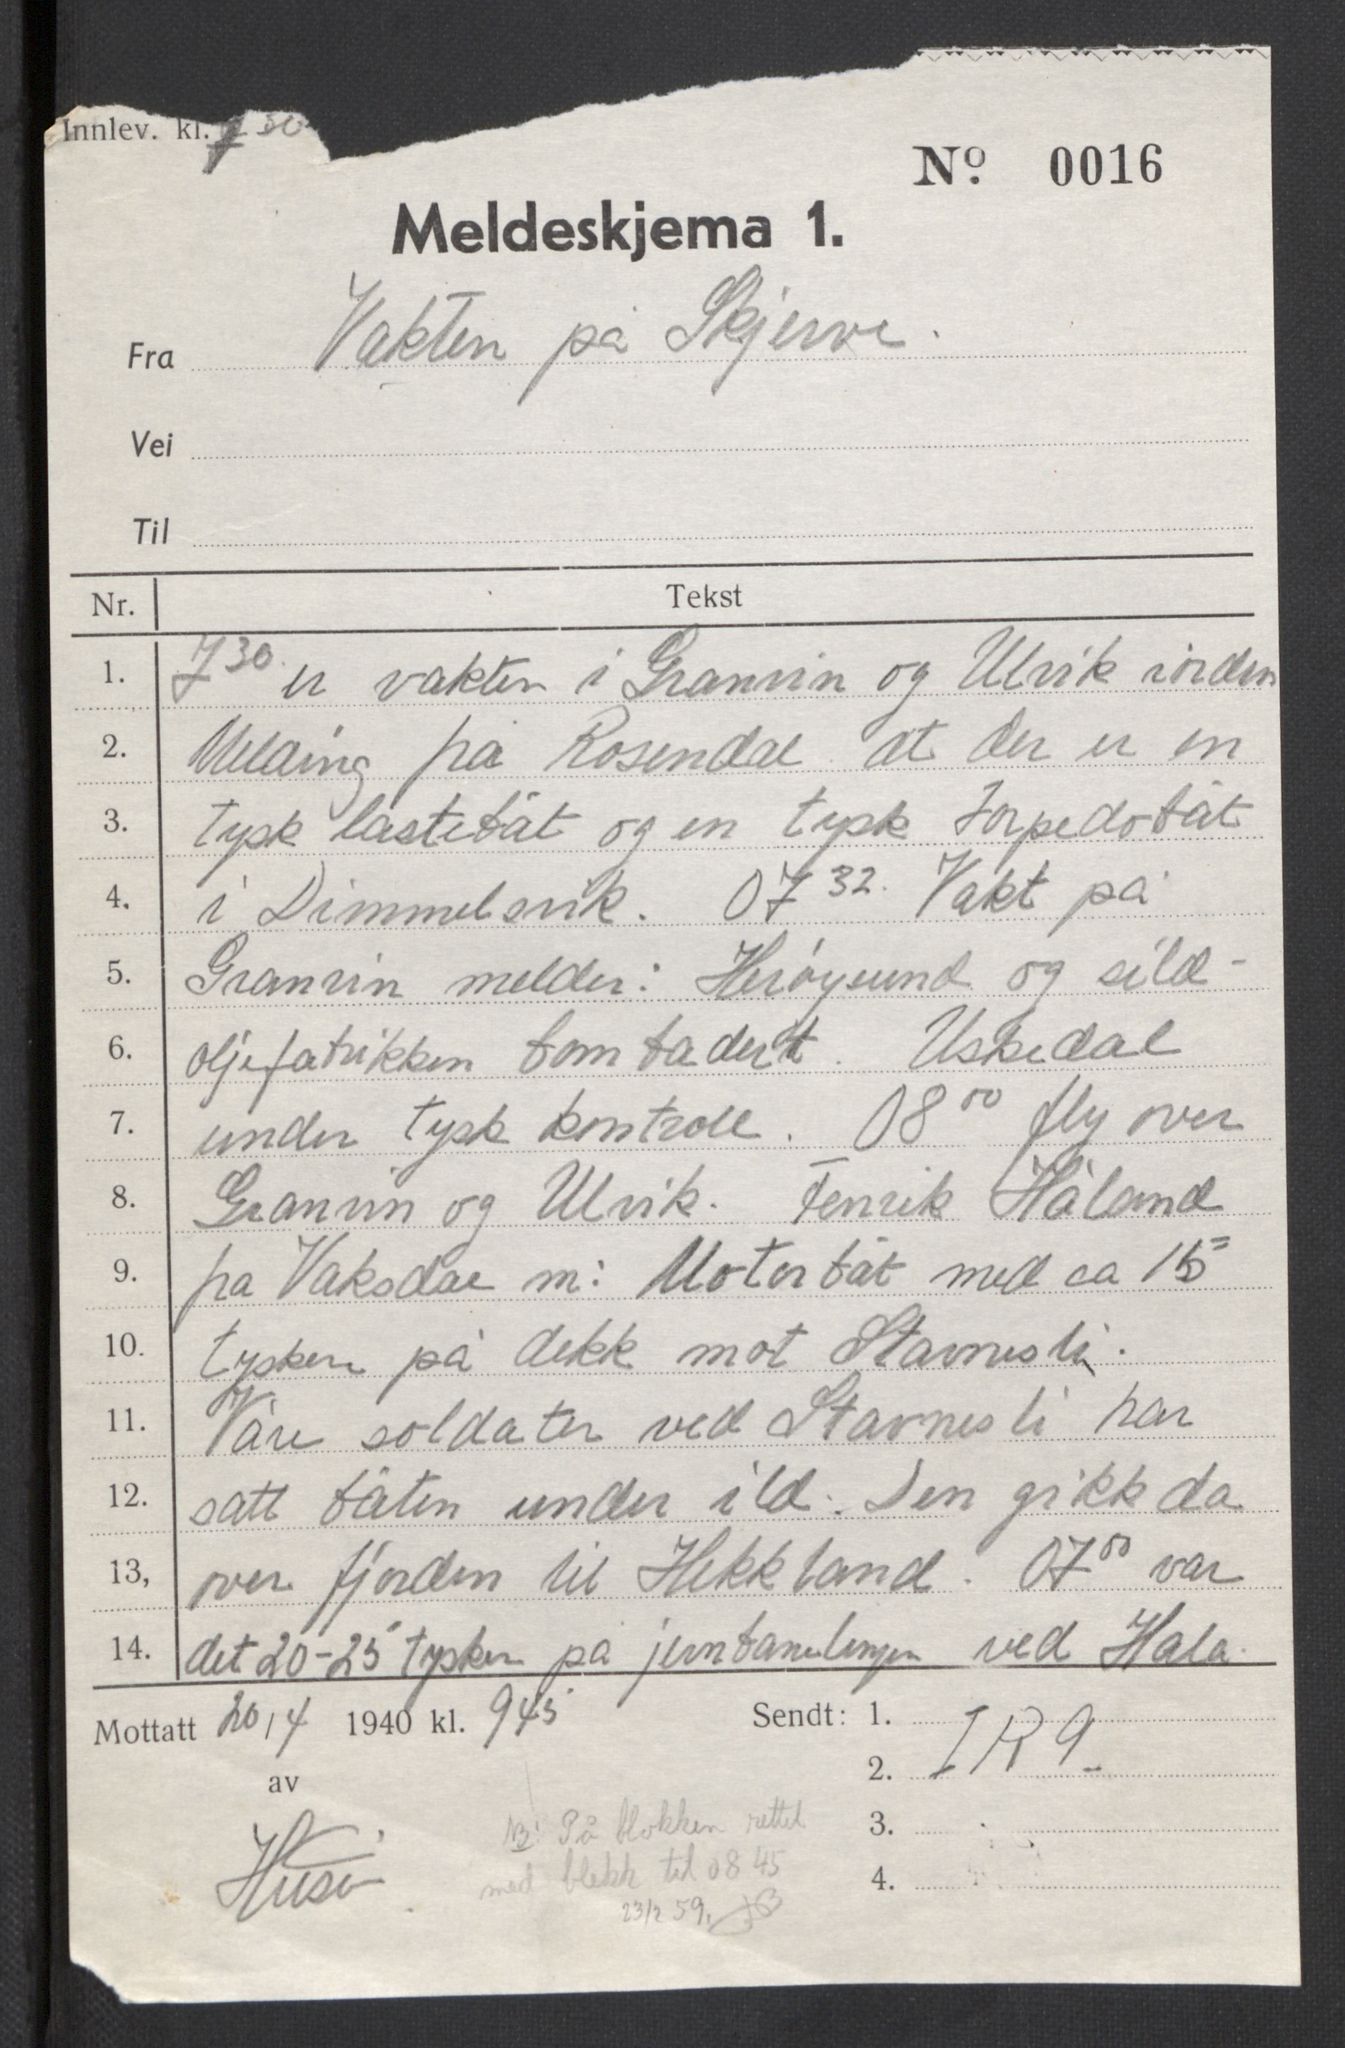 Innlev. kl. 7 30
Nº. 0016
Meldeskjema 1.
Fra Vakten på Skjerve.
Vei
Til
Nr. Tekst
1. 7 30. er vakten i Granvin og Ulvik iorden
2. Melding på Rosendal at der er en
3. tysk lastebåt og en tysk torpedobåt
4. i Dimmelsvik. 07 32. Vakt på
5. Granvin melder: Herøysund og sild-
6. oljefabrikken bombadert. Uskedal
7. under tysk kontroll. 08 00 fly over
8. Granvin og Ulvik. Fenrik Håland
9. på Vaksdal m: Motorbåt med ca 15
10. tysken på dekk mot Stavnesli.
11. Våre soldater ved Stavnesli har
12. satt båten under ild. Den gikk da
13, over fjorden til Hekkland. 07 00 var
14. det 20-25 tysken på jernbanelinjen ved Hala.
Mottatt 20/4 1940 kl. 945 Sendt: 1.
IR 9.
2.
av
Huse
3.
4.
NB! På blokken rettet
med blekk til 08 45
23/2 59. JB